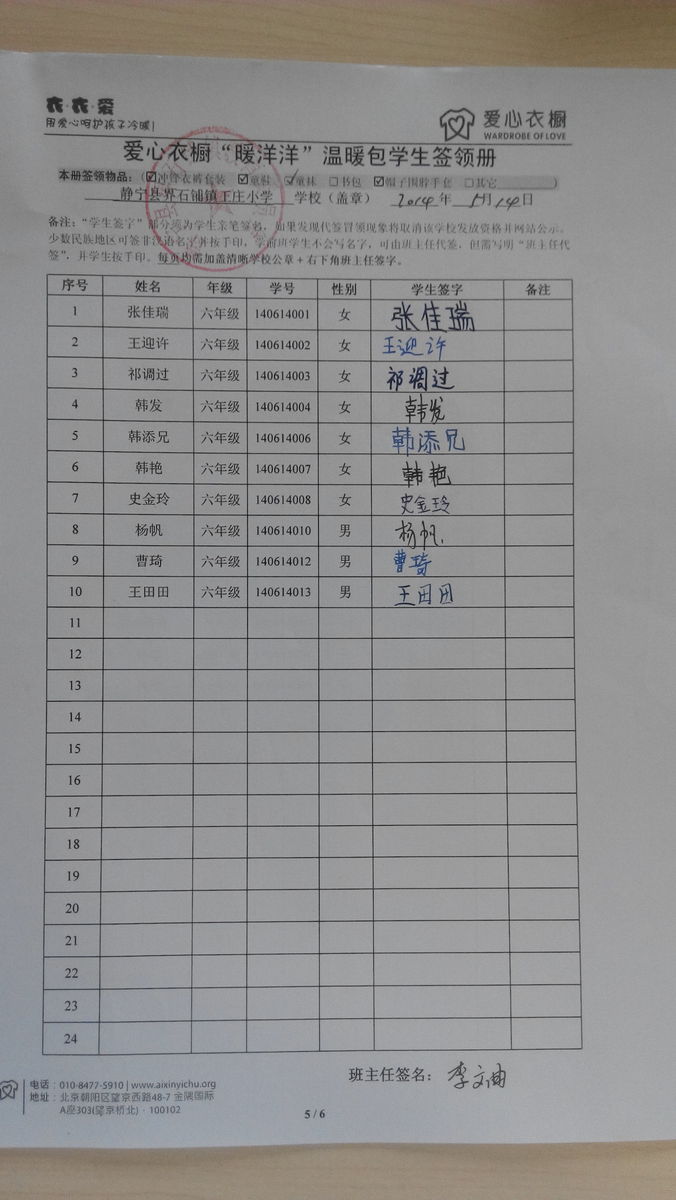 衣·衣·爱
用爱心呵护孩子冷暖!
爱心衣橱
WARDROBE OF LOVE
爱心衣橱“暖洋洋”温暖包学生签领册
本册签领物品:(☑冲锋衣裤套装 ☑童鞋 ☑童袜 □书包 ☑帽子围脖手套 □其它 )
静宁县界石铺镇下庄小学 学校(盖章) 2014年 5月14日
备注:“学生签字”部分须为学生亲笔签名,如果发现代签冒领现象将取消该学校发放资格并网站公示。
少数民族地区可签非汉语名字并按手印,学前班学生不会写名字,可由班主任代签,但需写明“班主任代
签”,并学生按手印。每页均需加盖清晰学校公章+右下角班主任签字。
序号 姓名 年级 学号 性别 学生签字 备注
1 张佳瑞 六年级 140614001 女 张佳瑞
2 王迎许 六年级 140614002 女 王迎许
3 祁调过 六年级 140614003 女 祁调过
4 韩发 六年级 140614004 女 韩发
5 韩添兄 六年级 140614006 女 韩添兄
6 韩艳 六年级 140614007 女 韩艳
7 史金玲 六年级 140614008 女 史金玲
8 杨帆 六年级 140614010 男 杨帆
9 曹琦 六年级 140614012 男 曹琦
10 王田田 六年级 140614013 男 王田田
11
12
13
14
15
16
17
18
19
20
21
22
23
24
班主任签名: 李文曲
电话:010-8477-5910 | www.aixinyichu.org
地址:北京朝阳区望京西路48-7 金隅国际
A座303(望京桥北)· 100102
5 / 6